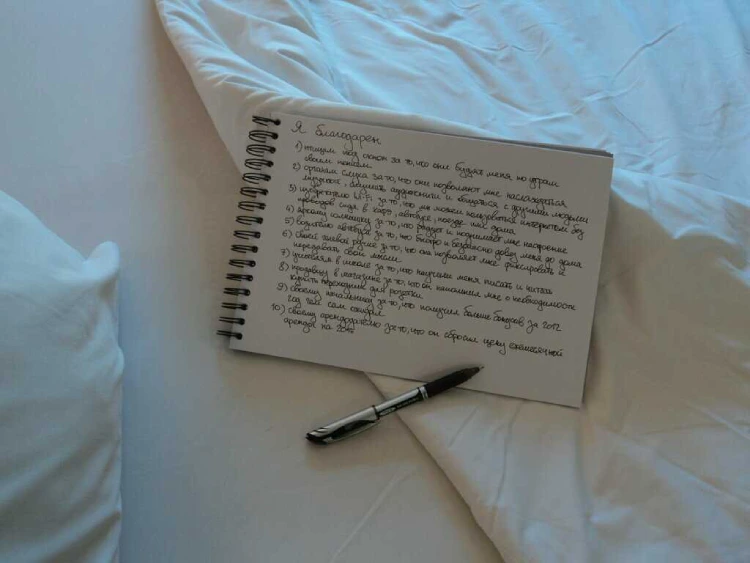 Я благодарен
1) птицам под окном за то, что они будят меня по утрам
своим пением.
2) органам слуха за то, что они позволяют мне наслаждаться
музыкой, слушать аудиокниги и общаться с другими людьми
3) изобретателю Wi-Fi за то, что мы можем пользоваться интернетом без
проводов сидя в кафе, автобусе, поезде или дома
4) своему за то, что радует и поднимает мне настроение
5) водителю автобуса за то, что быстро и безопасно довёз меня до дома
6) своей правой руке за то, что она позволяет мне фиксировать и
передавать свои мысли
7) учителям в школе за то, что научили меня писать и читать
8) продавцу в магазине за то, что он напомнил мне о необходимости
купить переходник для розетки
9) своему начальнику за то, что получил больше бонусов за 2012
год чем сам ожидал
10) своему арендодателю за то, что он сбросил цену ежемесячной
аренды на